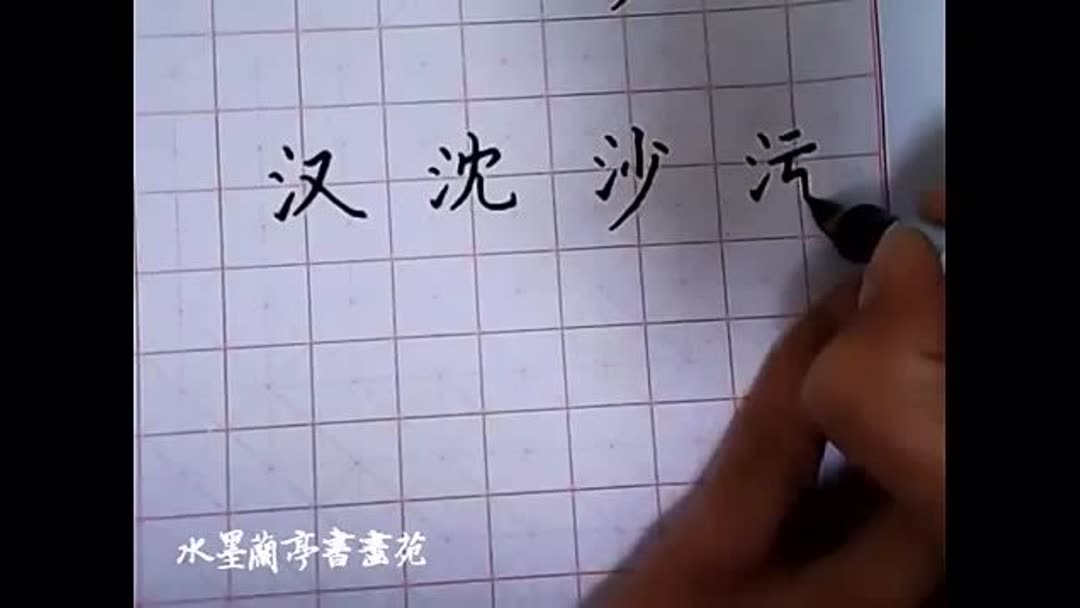 汉沈沙污
水墨蘭亭書畫苑